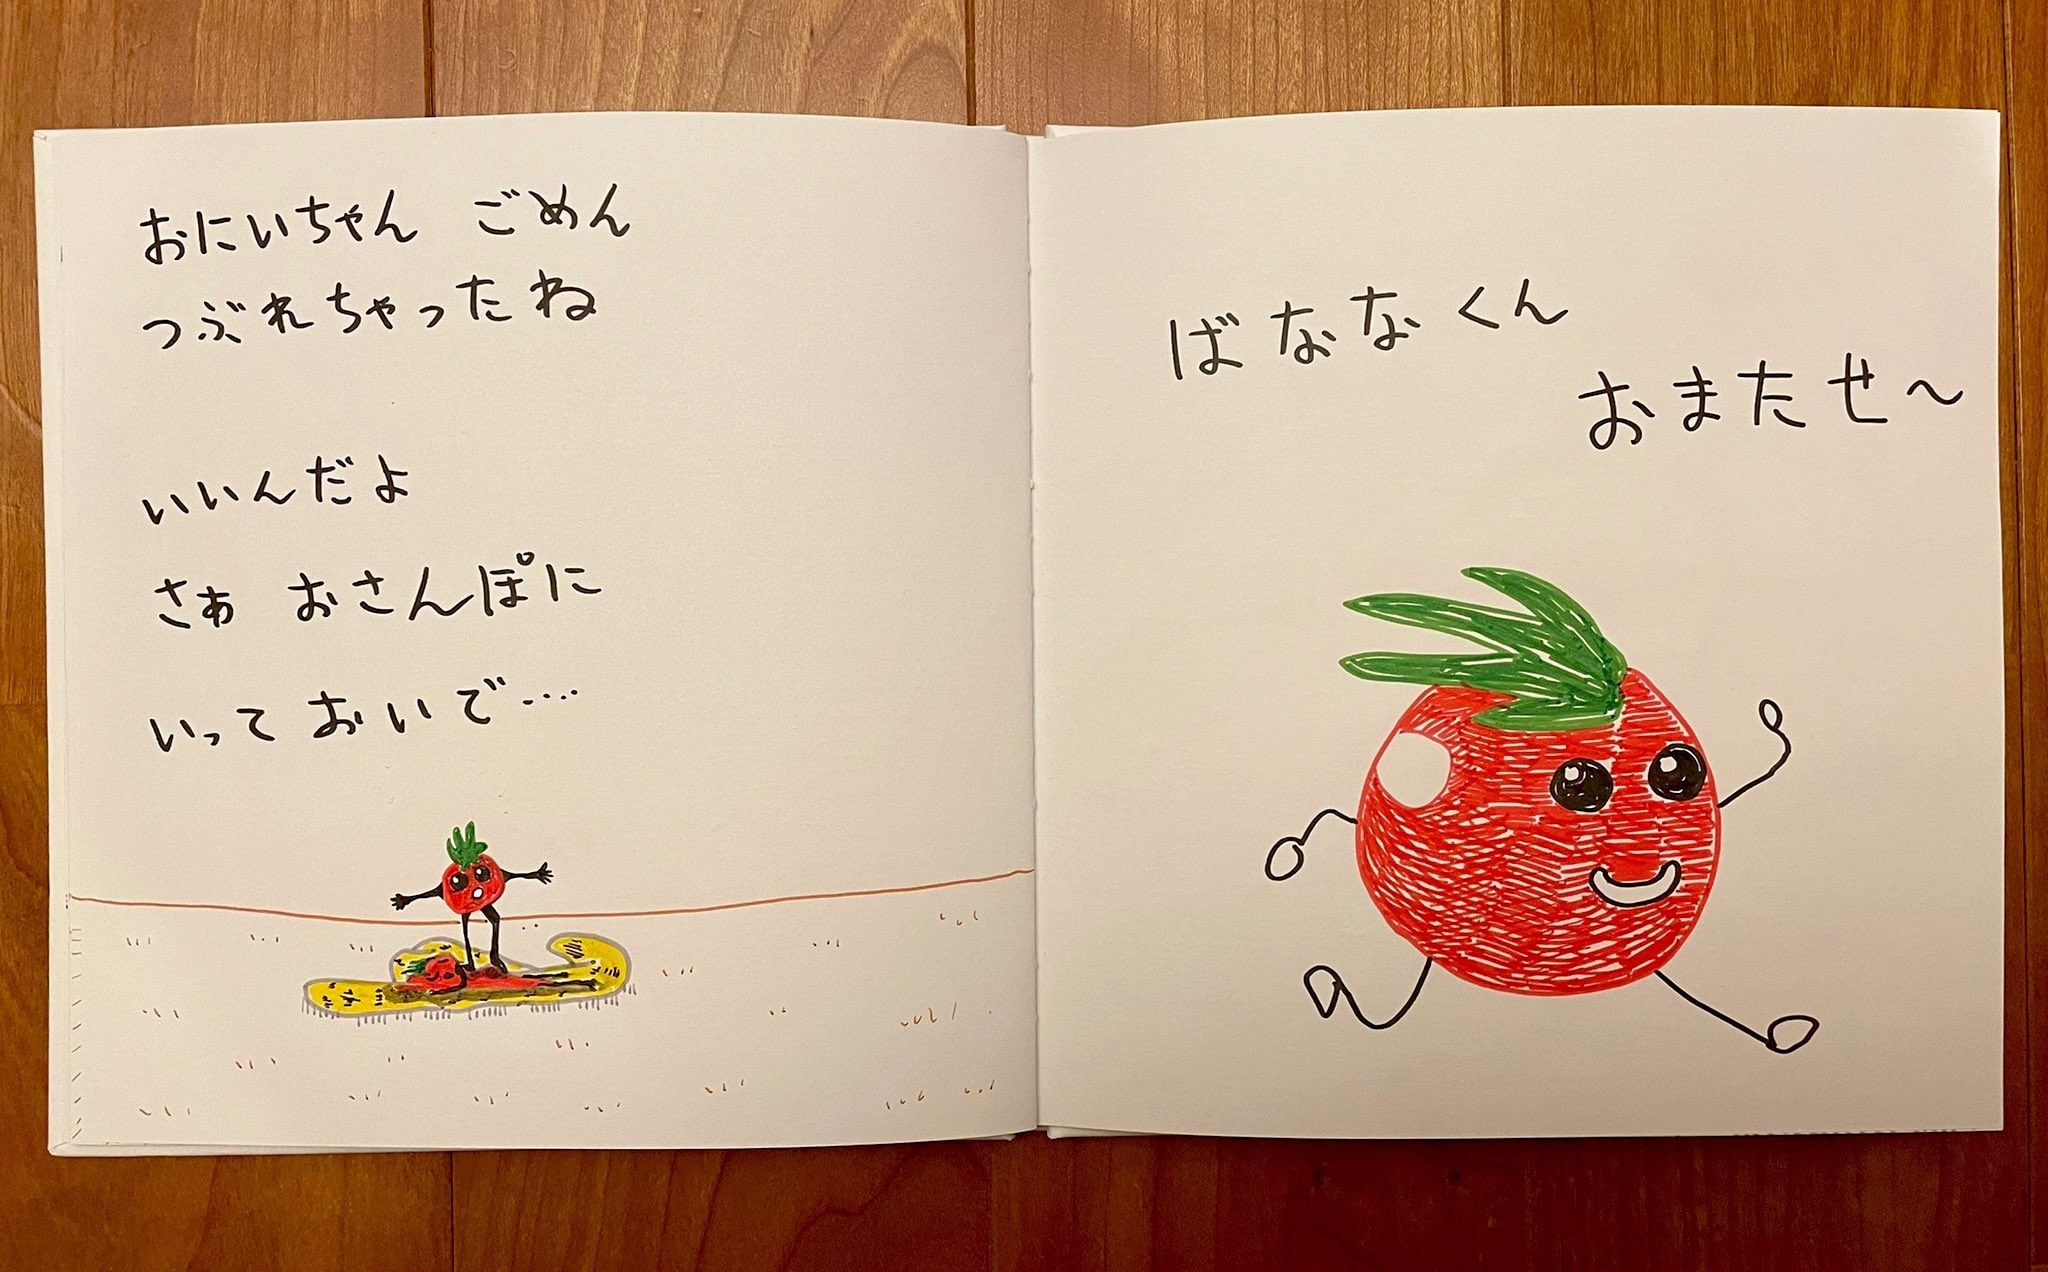 おにいちゃん ごめん
つぶれちゃったね
いいんだよ
さぁ おさんぽに
いって おいで‥‥
ばななくん
おまたせ〜